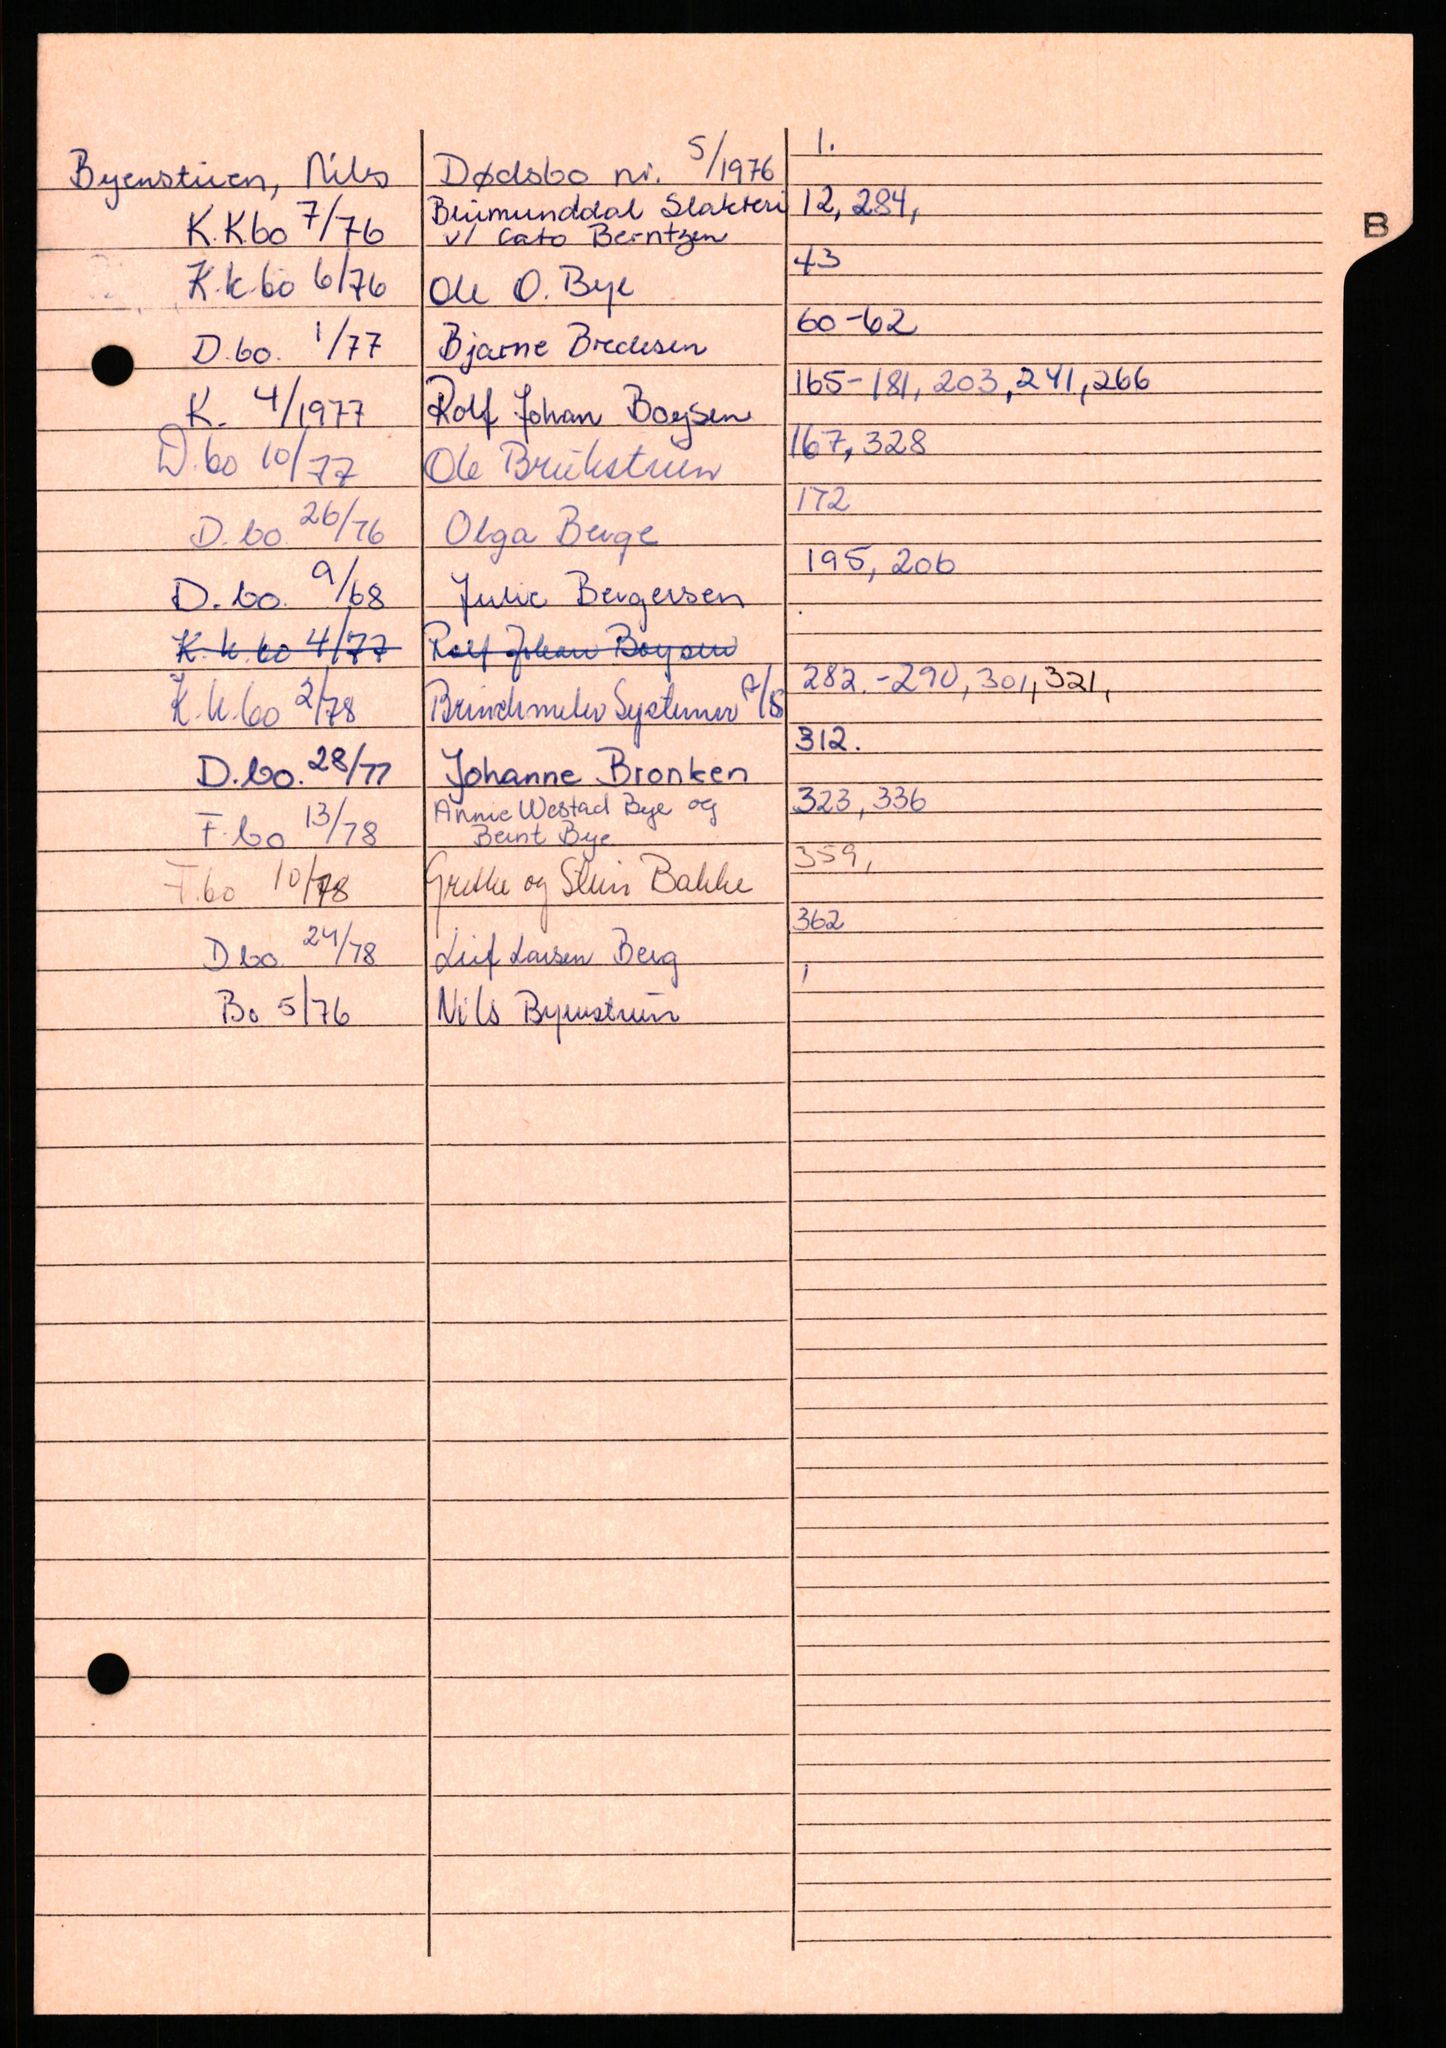 B
Byenstuen, Nils Dødsbo nr. 5/1976 1.
K.Kbo 7/76 Brumunddal Slakteri 12, 284,
v/ Cato Berntzen
K.k.bo 6/76 Ole O. Bye 43
D.bo. 1/77 Bjarne Bredesen 60-62
K. 4/1977 Rolf Johan Boysen 165-181, 203, 241, 266
D.bo 10/77 Ole 167, 328
D.bo. 26/76 Olga Berge 172
D.bo. 9/68 Julie Bergersen 195, 206
K.k.bo 4/77 Rolf Johan Boysen
K.k.bo 2/78 Systemer A/S 282.-290, 301, 321,
D.bo. 28/77 Johanne Bronken 312.
F.bo 13/78 Annie Westad Bye og 323, 336
Bernt Bye
F.bo 10/78 Grethe og Stein Bakke 359,
D.bo. 24/78 Leif Larsen Berg 362
Bo 5/76 Nils Byenstuen 1